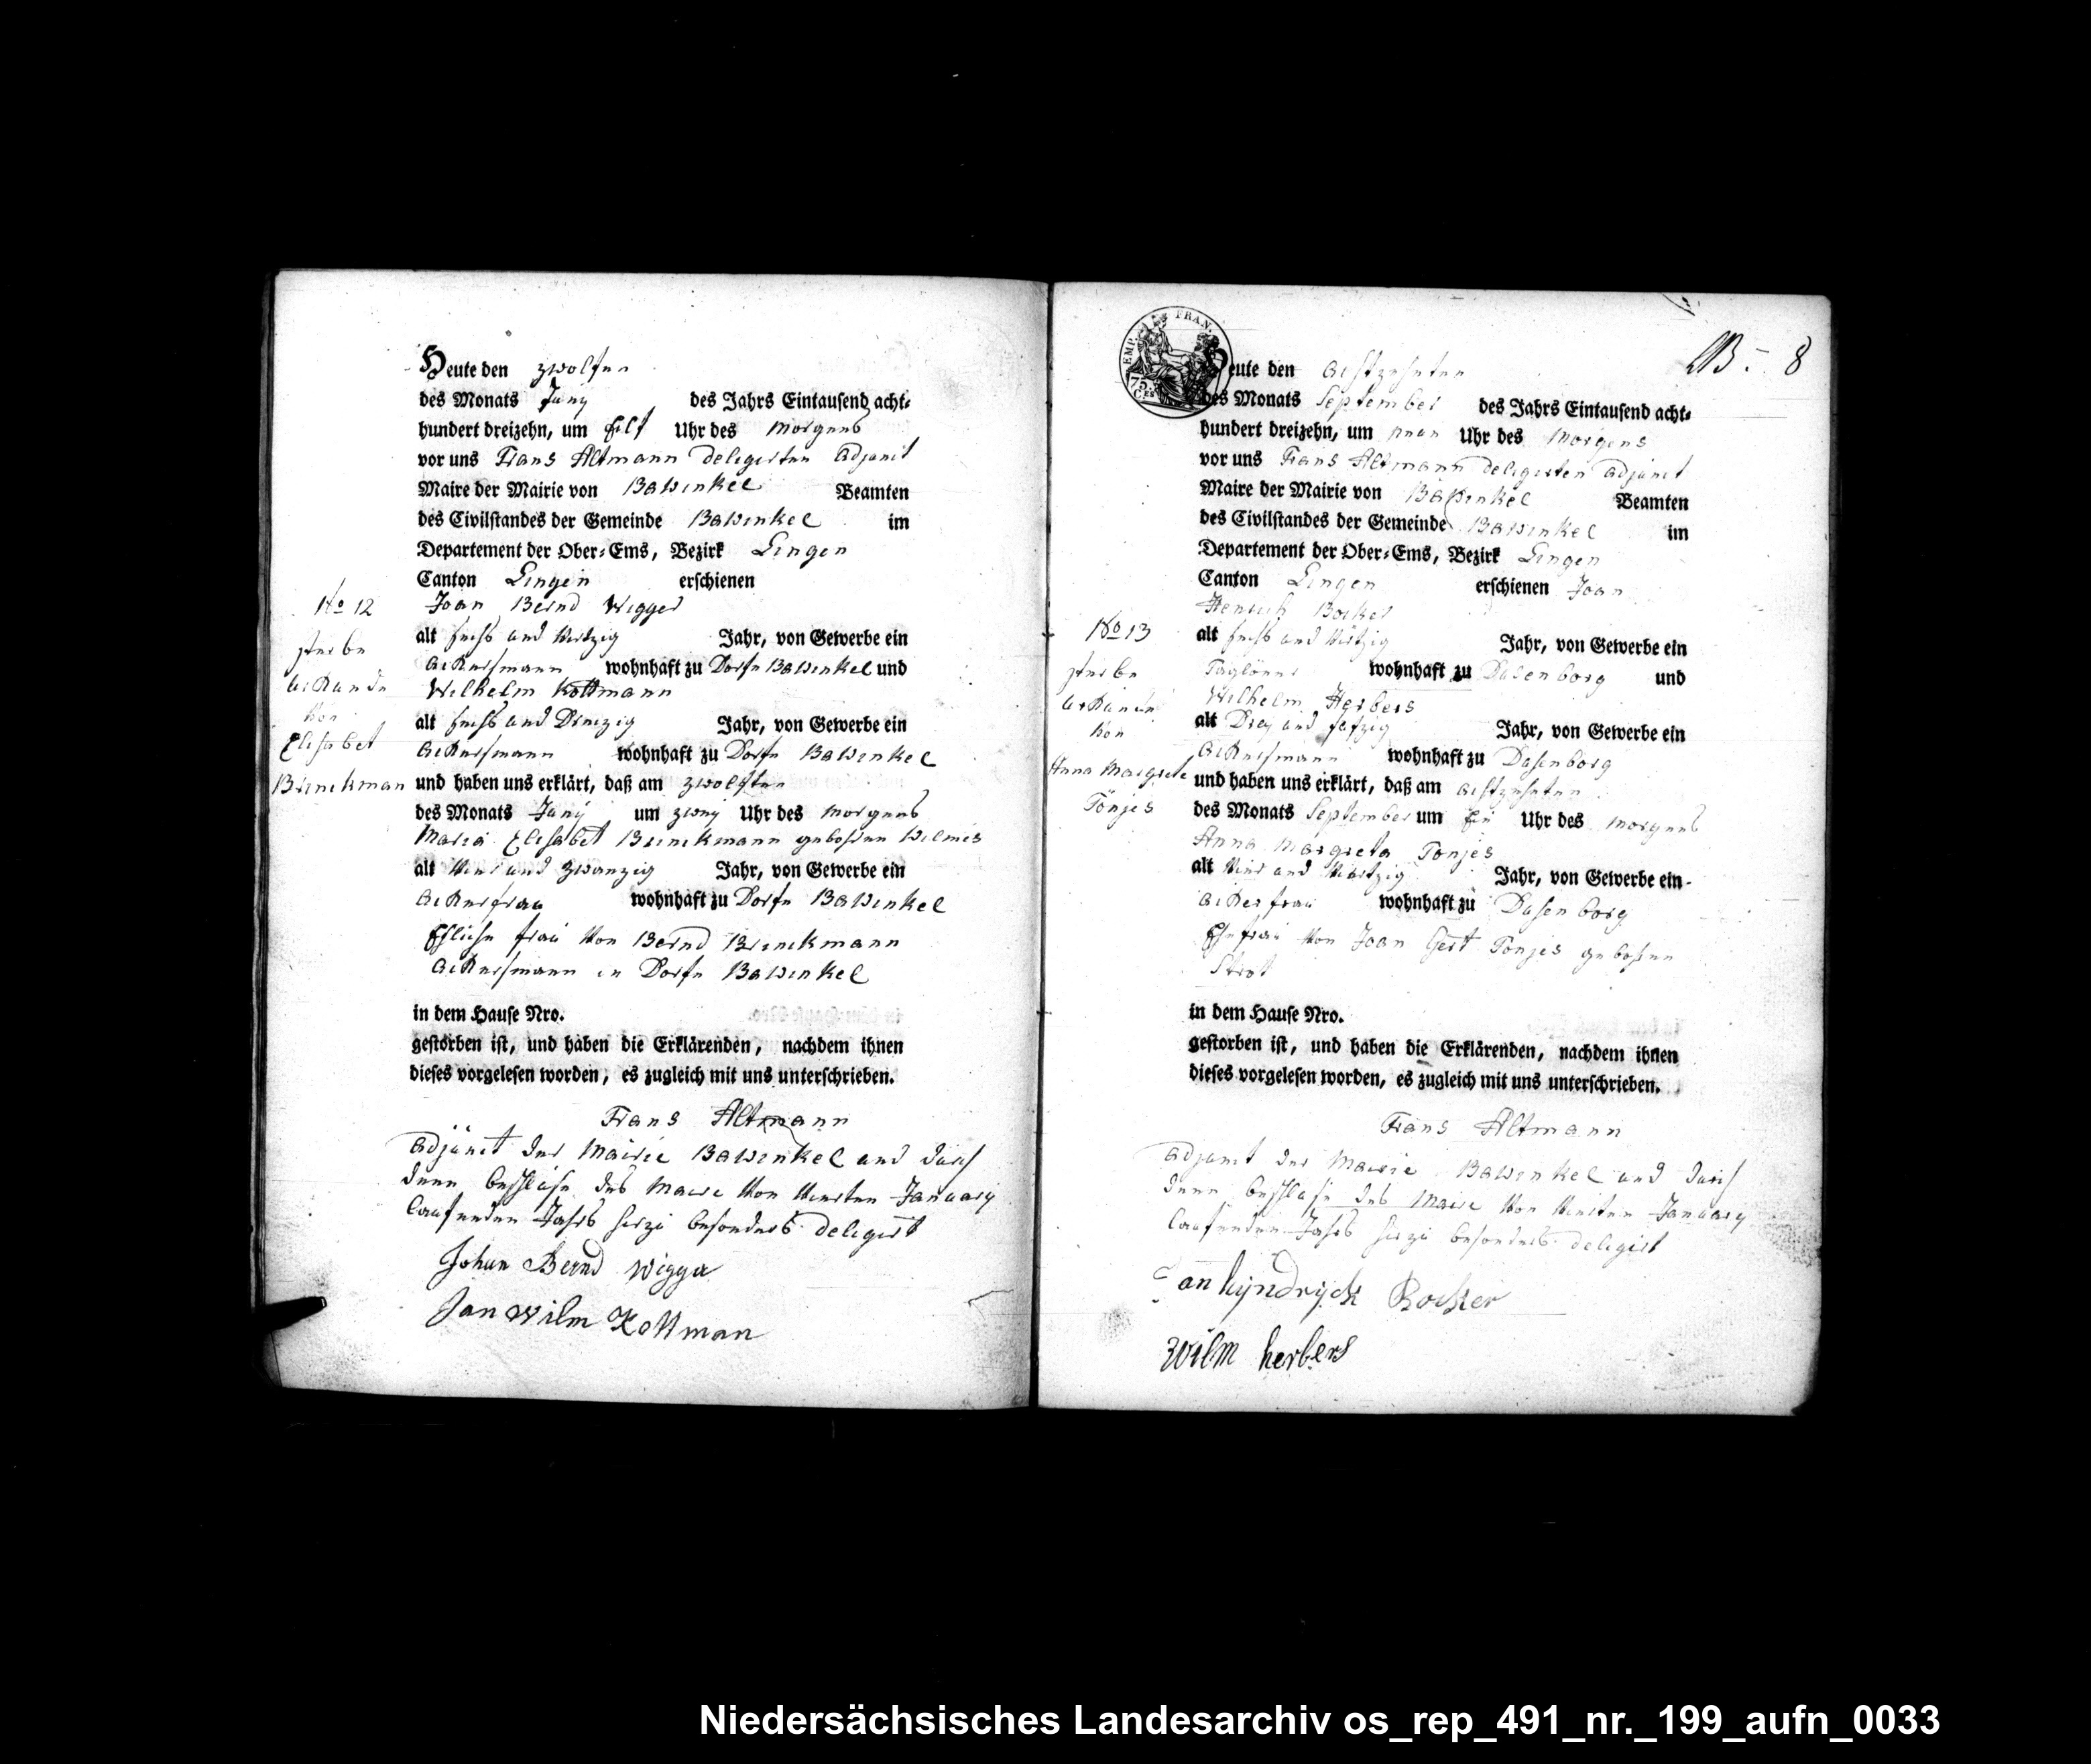 Heute den zwolften
des Monats Juny des Jahrs Eintausend acht-
hundert dreizehn, um Eilf Uhr des Morgens
vor uns Frans Altmann delegirten Adjunct
Maire der Mairie von Bawinkel Beamten
des Civilstandes der Gemeinde Bawinkel im
Departement der Ober-Ems, Bezirk Lingen
Canton Lingen erschienen
Joan Bernd Wigger
alt sechs und Viertzig Jahr, von Gewerbe ein
Ackersmann wohnhaft zu Dorfe Bawinkel und
Wilhelm Kottmann
alt sechs und Dreizig Jahr, von Gewerbe ein
Ackersmann wohnhaft zu Dorfe Bawinkel
und haben uns erklärt, daß am zwolften
des Monats Juny um zwey Uhr des Morgens
Maria Elisabet Brinckmann gebohren Wilmes
alt Vier und Zwanzig Jahr, von Gewerbe ein
Ackerfrau wohnhaft zu Dorfe Bawinkel
Ehliche frau Von Bernd Brinckmann
Ackersmann in Dorfe Bawinkel
in dem Hause Nro.
gestorben ist, und haben die Erklärenden, nachdem ihnen
dieses vorgelesen worden, es zugleich mit uns unterschrieben.
Frans Altmann
Adjunct der Mairie Bawinkel und durch
denn beschluse des Maire Von Vierten January
laufenden Jahrs hierzu besonders delegirt
Johan Bernd Wigger
Jan Wilm Kottman
No 12
sterbe
urkunde
von
Elisabet
Brinckman
EMP. FRAN.
75.
Ces
B. 8
Heute den Achtzehnten
des Monats September des Jahrs Eintausend acht-
hundert dreizehn, um neun Uhr des Morgens
vor uns Frans Altmann delegirten Adjunct
Maire der Mairie von Bawinkel Beamten
des Civilstandes der Gemeinde Bawinkel im
Departement der Ober-Ems, Bezirk Lingen
Canton Lingen erschienen Joan
Henrich Bocker
alt sechs und Viertzig Jahr, von Gewerbe ein
Taglöner wohnhaft zu Dusenborg und
Wilhelm Herbers
alt Drey und fufzig Jahr, von Gewerbe ein
Ackersmann wohnhaft zu Dusenborg
und haben uns erklärt, daß am achtzehnten
des Monats September um Ein Uhr des Morgens
Anna Margreta Tonjes
alt Vier und Viertzig Jahr, von Gewerbe ein
Ackerfrau wohnhaft zu Dusenborg
Ehefrau Von Joan Gert Tonjes gebohren
Strot
in dem Hause Nro.
gestorben ist, und haben die Erklärenden, nachdem ihnen
dieses vorgelesen worden, es zugleich mit uns unterschrieben.
Frans Altmann
Adjunct der Mairie Bawinkel und durch
denn beschluse des Maire Von Vierten January
laufenden Jahrs hierzu besonders delegirt
Jan hyndryck Bocker
Wilm herbers
No 13
sterbe
urkunde
von
Anna Margrete
Tönjes
Niedersächsisches Landesarchiv os_rep_491_nr._199_aufn_0033